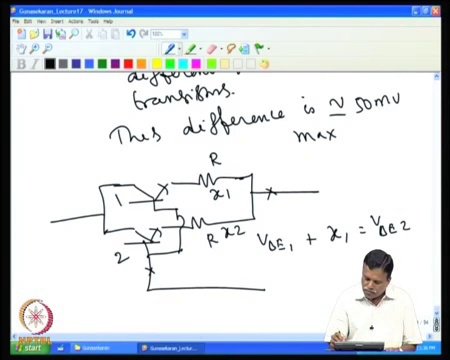 Gunasekaran_Lecture17 - Windows Journal
File Edit View Insert Actions Tools Help
100%
B I
transistors.
This difference is ≃ 50mV
max
R
1
x1
R x2
V_BE1 + x1 = V_BE2
2
NPTEL
start
Gunasekaran
Gunasekaran_Lectu...